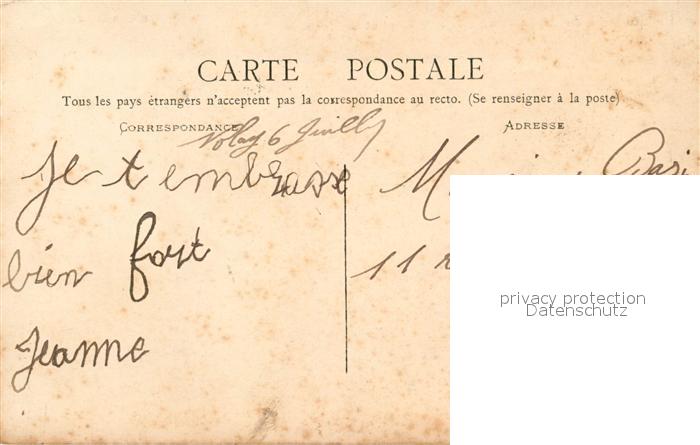 CARTE POSTALE
Tous les pays étrangers n'acceptent pas la correspondance au recto. (Se renseigner à la poste)
CORRESPONDANCE
ADRESSE
6 Juillet
Je t embrasse
bien fort
Jeanne
11
privacy protection
Datenschutz